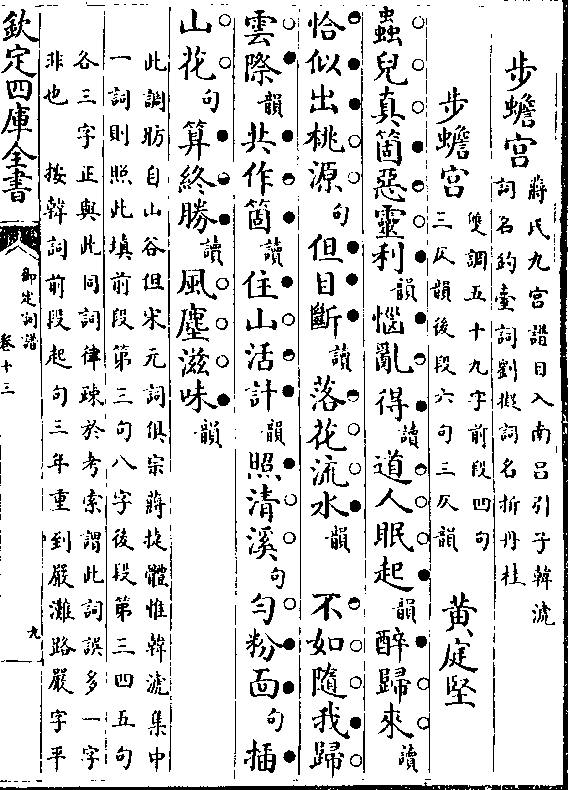 步蟾宮 蔣氏九宮譜目入南呂引子韓淲
詞名釣臺詞劉擬詞名折丹桂
步蟾宮 雙調五十九字前段四句
三仄韻後段六句三仄韻 黃庭堅
蟲兒真箇惡靈利韻惱亂得讀道人眠起韻醉歸來讀
恰似出桃源句但目斷讀落花流水韻 不如隨我歸
雲際韻共作箇讀住山活計韻照清溪句勻粉面句插
山花句算終勝讀風塵滋味韻
此調昉自山谷但宋元詞俱宗蔣捷體惟韓淲集中
一詞則照此填前段第三句八字後段第三四五句
各三字正與此同詞律疎於考索謂此詞誤多一字
非也 按韓詞前段起句三年重到嚴灘路嚴字平
欽定四庫全書
御定詞譜
卷十三
九